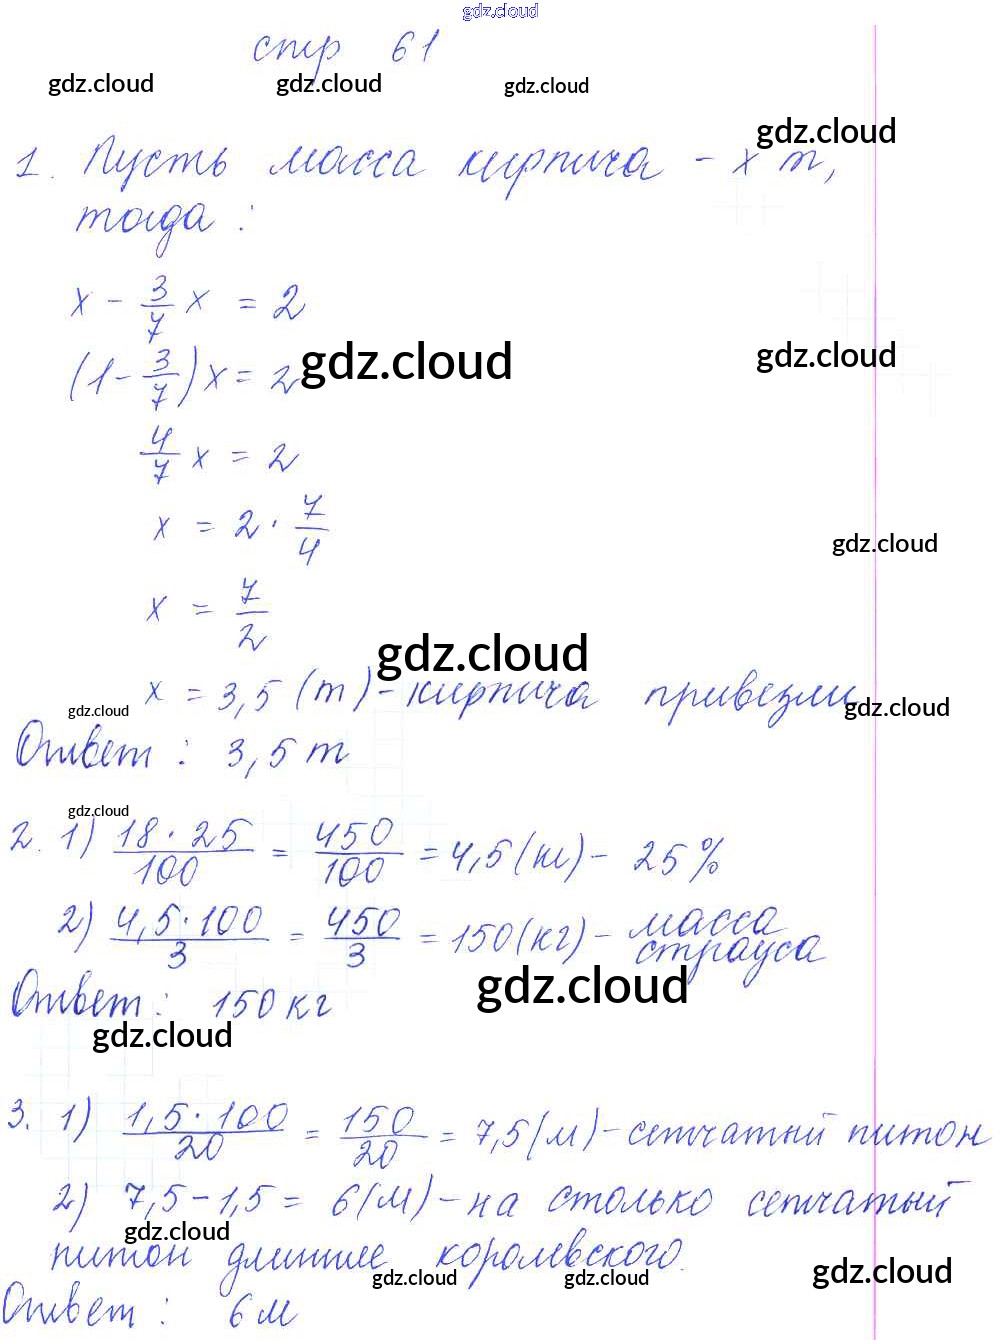 gdz.cloud
стр 61
gdz.cloud gdz.cloud gdz.cloud
gdz.cloud
1. Пусть масса кирпича - x т,
тогда :
x - 3/7 x = 2
(1 - 3/7) x = 2
gdz.cloud gdz.cloud
4/7 x = 2
x = 2 · 7/4
gdz.cloud
x = 7/2
gdz.cloud
x = 3,5 (т) - кирпича привезли
gdz.cloud gdz.cloud
Ответ : 3,5 т
gdz.cloud
2. 1) 18 · 25/100 = 450/100 = 4,5 (кг) - 25 %
2) 4,5 · 100/3 = 450/3 = 150 (кг) - масса страуса
gdz.cloud
Ответ : 150 кг
gdz.cloud
3. 1) 1,5 · 100/20 = 150/20 = 7,5 (м) - сетчатый питон
2) 7,5 - 1,5 = 6 (м) - на столько сетчатый
gdz.cloud
питон длиннее королевского.
gdz.cloud gdz.cloud gdz.cloud
Ответ : 6 м